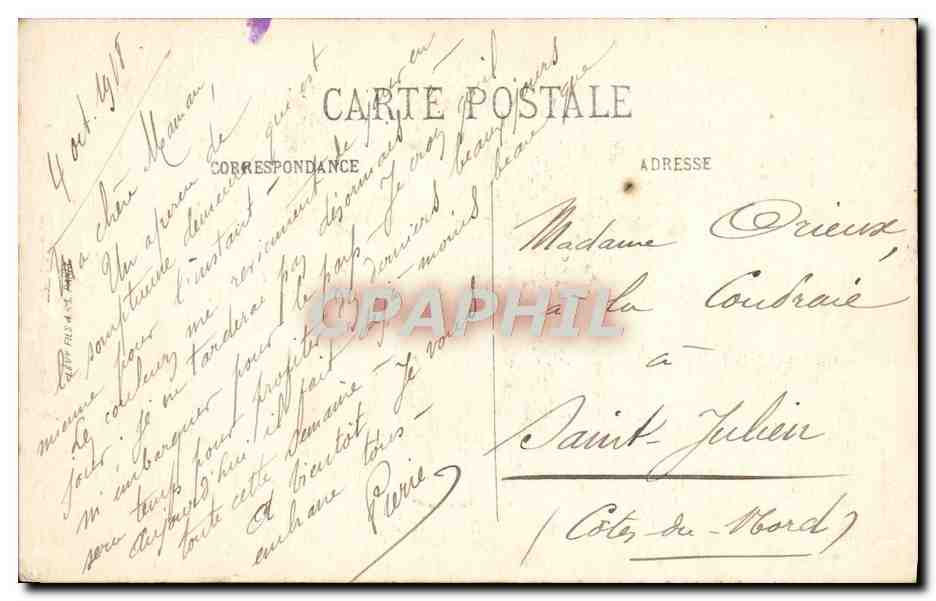 CARTE POSTALE
CORRESPONDANCE
ADRESSE
4 oct. 1918
Ma chère Maman,
Un aperçu de
la somptueuse demeure qui est
mienne pour l'instant -
Les couleurs me reviennent de jour en
jour; je ne tarderai pas désormais à
m'embarquer pour le pays - Je crois qu'il
sera temps pour profiter des derniers beaux jours
aujourd'hui il fait moins beau que
toute cette semaine -
A bientôt. Je vous
embrasse tous -
Pierre
Madame Orieux,
à la Coudraie
à
Saint-Julien
(Côtes-du-Nord)
LEVY FILS & Cie PARIS
CPAPHIL